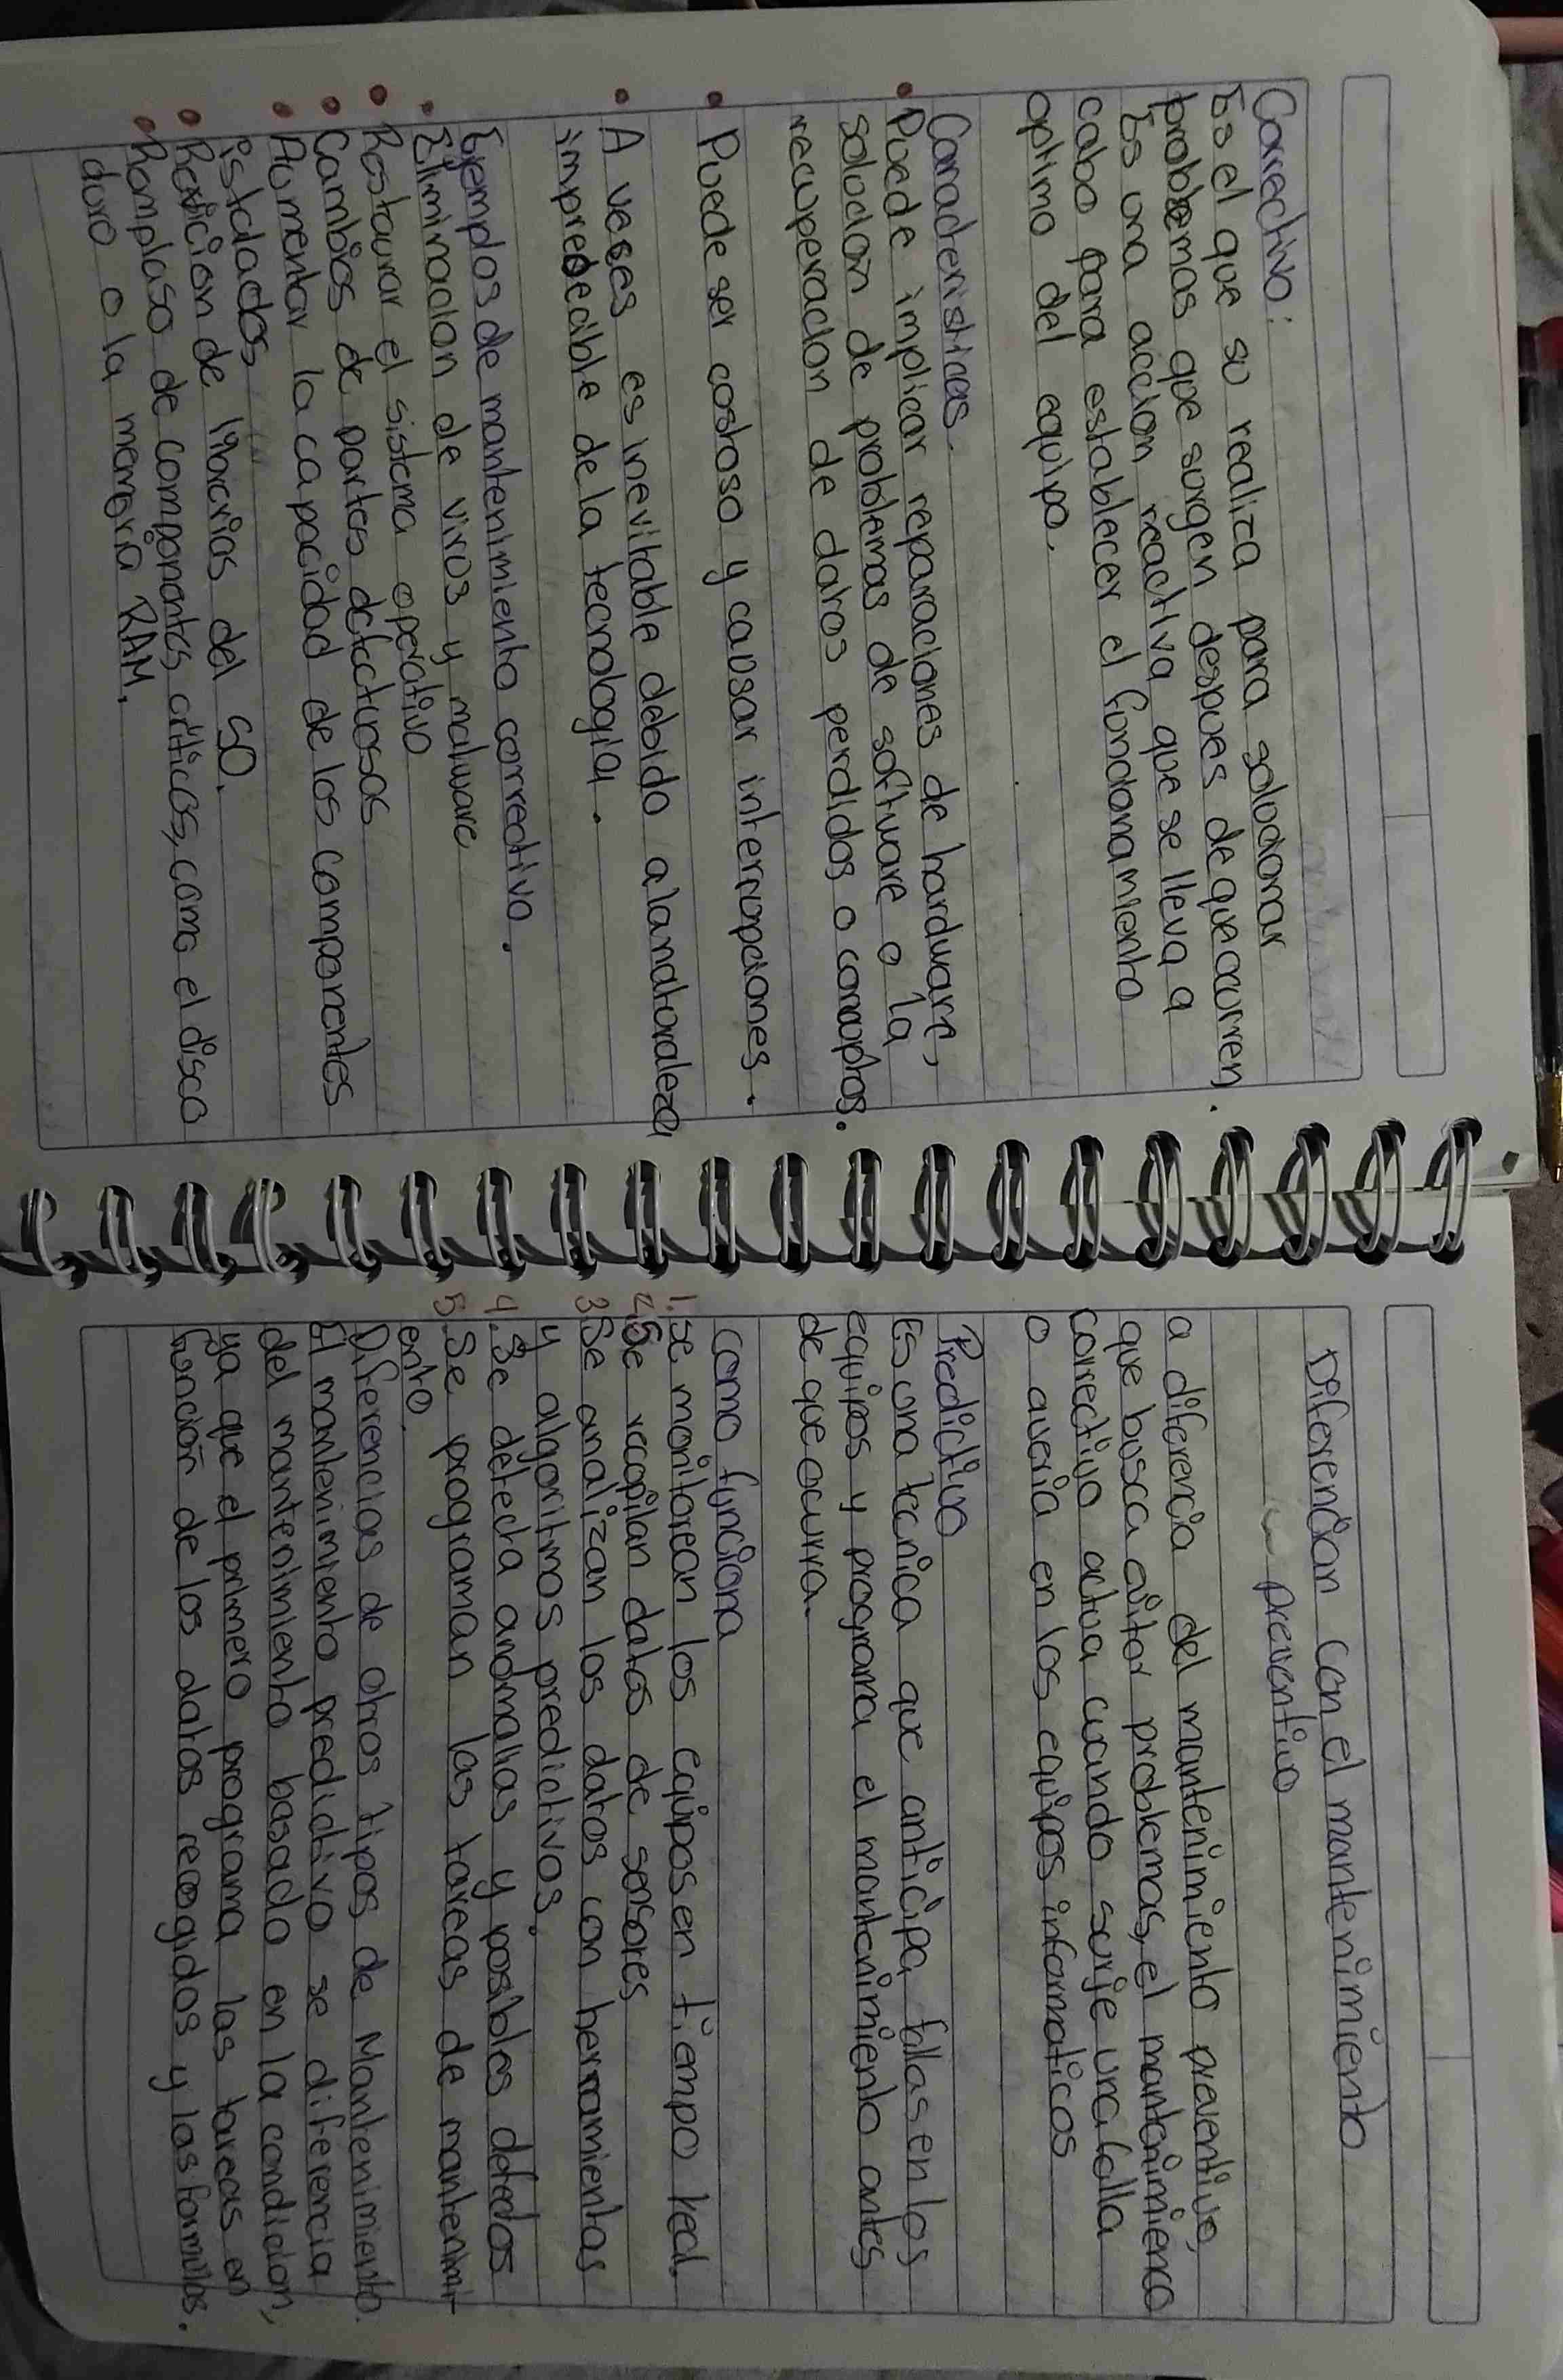 Correctivo:
Es el que se realiza para solucionar
problemas que surgen despues de que ocurren.
Es una accion reactiva que se lleva a
cabo para establecer el fundonamiento
optimo del equipo.
Caracteristicas.
• Puede implicar reparaciones de hardware,
solucion de problemas de software o la
recuperacion de datos perdidos o corruptos.
• Puede ser costoso y causar interrupciones.
• A veces es inevitable debido a la naturaleza
impredecible de la tecnologia.
Ejemplos de mantenimiento correctivo.
• Eliminacion de virus y malware
• Restaurar el sistema operativo
• Cambios de partes defectuosas
• Aumentar la capacidad de los componentes
istalados
• de del SO.
• Remplaso de componentes criticos, como el disco
duro o la memoria RAM.
Diferencian con el mantenimiento
preventivo
a diferencia del mantenimiento preventivo,
que busca evitar problemas, el mantenimieno
correctivo actua cuando surje una falla
o averia en los equipos informaticos
Predictivo
Es una tecnica que anticipa fallas en los
equipos y programa el mantenimiento antes
de que ocurra.
como funciona
1. se monitorean los equipos en tiempo real.
2. Se recopilan datos de sensores
3. Se analizan los datos con herramientas
y algoritmos predictivos.
4. Se detecta anomalias y posibles defectos
5. Se programan las tareas de mantenimi-
ento.
Diferencias de otros tipos de Mantenimiento.
El mantenimiento predictivo se diferencia
del mantenimiento basado en la condicion,
ya que el primero programa las tareas en
función de los datos recogidos y las formulas.